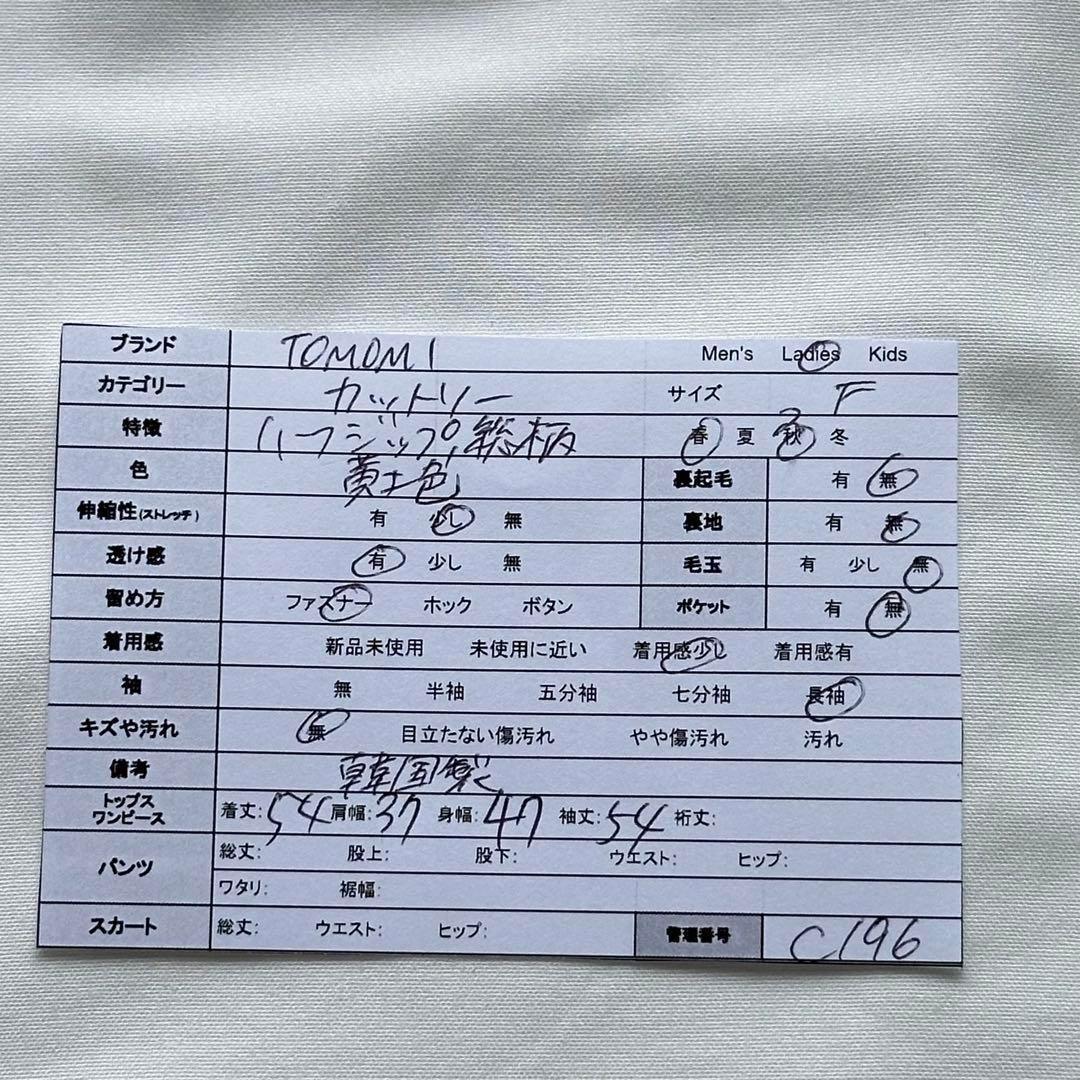 ブランド TOMOMI Men's Ladies Kids
カテゴリー カットソー サイズ F
特徴 ハーフジップ,総柄 春 夏 秋 冬
色 黄土色 裏起毛 有 無
伸縮性(ストレッチ) 有 少し 無 裏地 有 無
透け感 有 少し 無 毛玉 有 少し 無
留め方 ファスナー ホック ボタン ポケット 有 無
着用感 新品未使用 未使用に近い 着用感少し 着用感有
袖 無 半袖 五分袖 七分袖 長袖
キズや汚れ 無 目立たない傷汚れ やや傷汚れ 汚れ
備考 韓国製
トップス
ワンピース 着丈:54 肩幅:37 身幅:47 袖丈:54 裄丈:
パンツ 総丈: 股上: 股下: ウエスト: ヒップ:
ワタリ: 裾幅:
スカート 総丈: ウエスト: ヒップ: 管理番号 C196